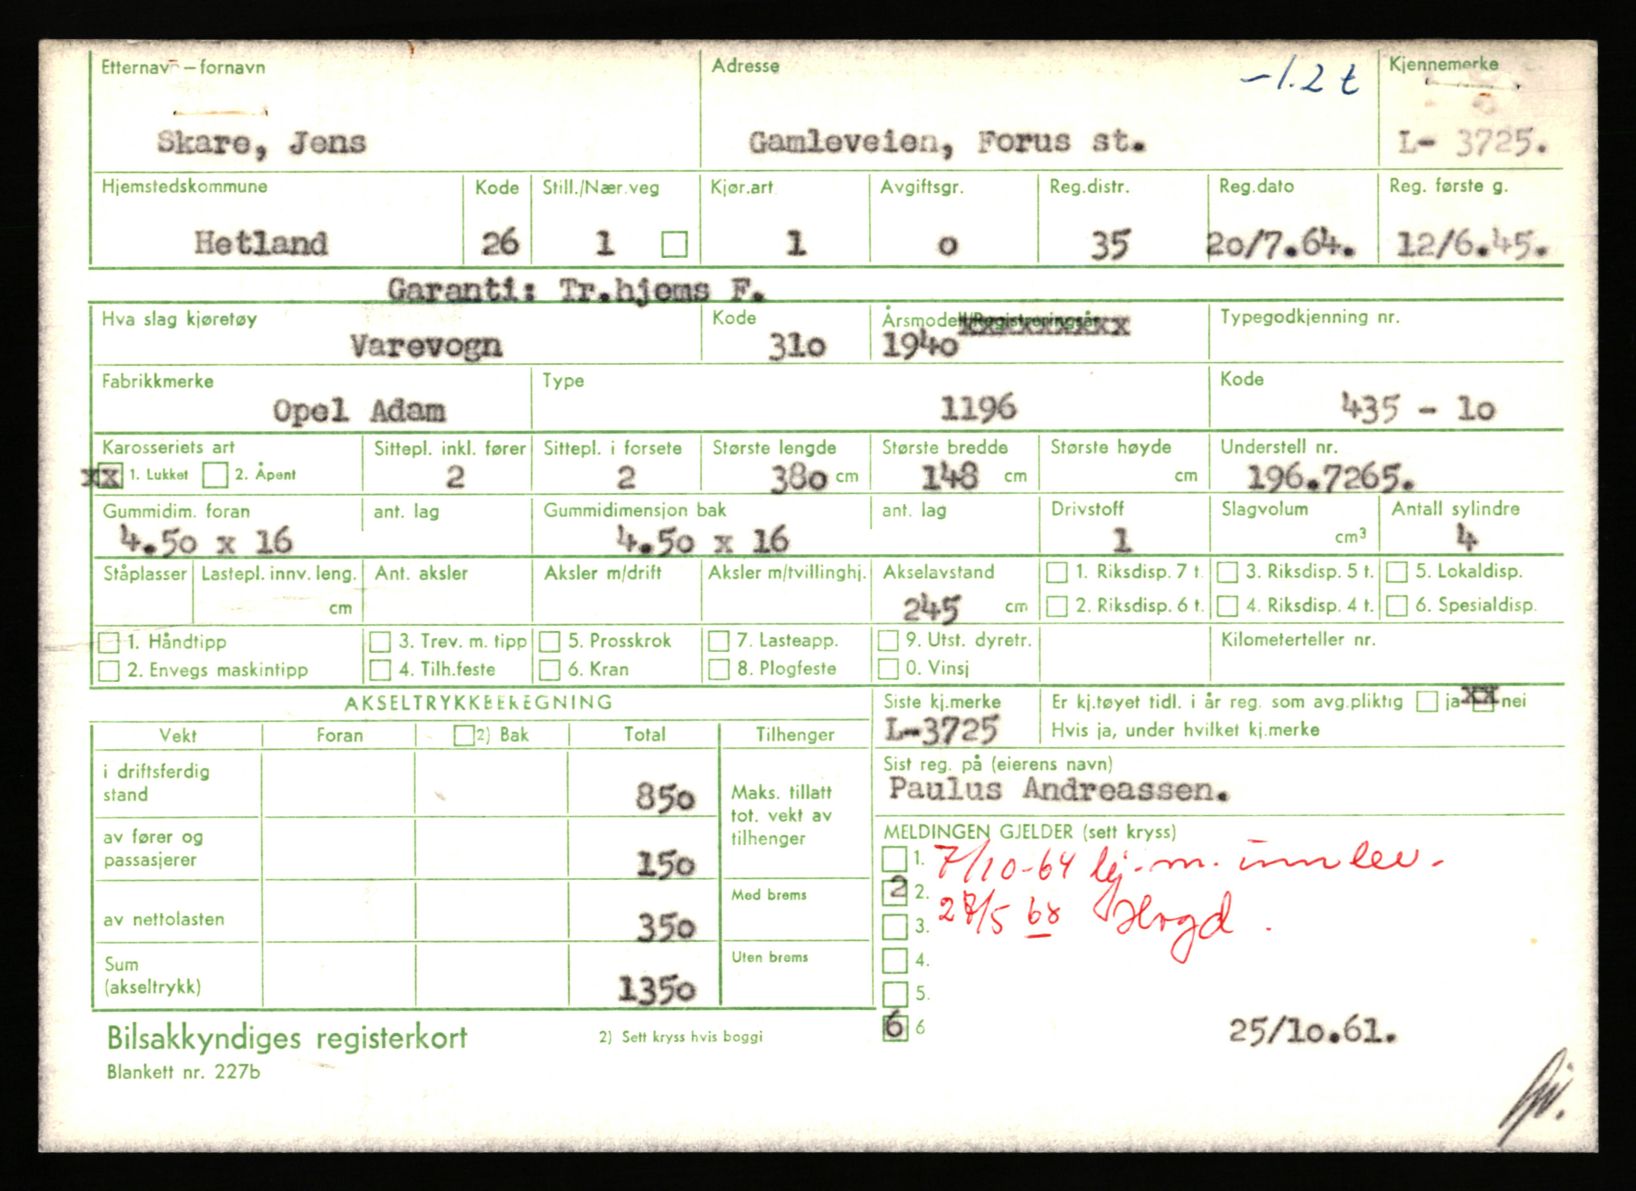 Etternavn – fornavn Adresse -1.2 t Kjennemerke
Skare, Jens Gamleveien, Forus st. L- 3725.
Hjemstedskommune Kode Still./Nær.veg Kjør.art Avgiftsgr. Reg.distr. Reg.dato Reg. første g.
Hetland 26 1 1 o 35 20/7.64. 12/6.45.
Garanti: Tr.hjems F.
Hva slag kjøretøy Kode Årsmodell/Registreringsår Typegodkjenning nr.
Varevogn 310 1940
Fabrikkmerke Type Kode
Opel Adam 1196 435 - 10
Karosseriets art Sittepl. inkl. fører Sittepl. i forsete Største lengde Største bredde Største høyde Understell nr.
xx 1. Lukket 2. Åpent 2 2 380 cm 148 cm cm 196.7265.
Gummidim. foran ant. lag Gummidimensjon bak ant. lag Drivstoff Slagvolum Antall sylindre
4.50 x 16 4.50 x 16 1 cm³ 4
Ståplasser Lastepl. innv. leng. Ant. aksler Aksler m/drift Aksler m/tvillinghj. Akselavstand 1. Riksdisp. 7 t. 3. Riksdisp. 5 t. 5. Lokaldisp.
cm 245 cm 2. Riksdisp. 6 t. 4. Riksdisp. 4 t. 6. Spesialdisp.
1. Håndtipp 3. Trev. m. tipp 5. Prosskrok 7. Lasteapp. 9. Utst. dyretr. Kilometerteller nr.
2. Envegs maskintipp 4. Tilh.feste 6. Kran 8. Plogfeste 0. Vinsj
AKSELTRYKKBEREGNING Siste kj.merke Er kj.tøyet tidl. i år reg. som avg.pliktig ja xx nei
Vekt Foran 2) Bak Total Tilhenger L-3725 Hvis ja, under hvilket kj.merke
i driftsferdig stand 850 Maks. tillatt tot. vekt av tilhenger Sist reg. på (eierens navn)
Paulus Andreassen.
av fører og passasjerer 150 MELDINGEN GJELDER (sett kryss)
1. 7/10-64 kj.m. innlev.
Med brems 2 2.
av nettolasten 350 3. 28/5 68 Hogd.
Uten brems 4.
Sum (akseltrykk) 1350 5.
6 6 25/10.61.
Bilsakkyndiges registerkort 2) Sett kryss hvis boggi
Blankett nr. 227b